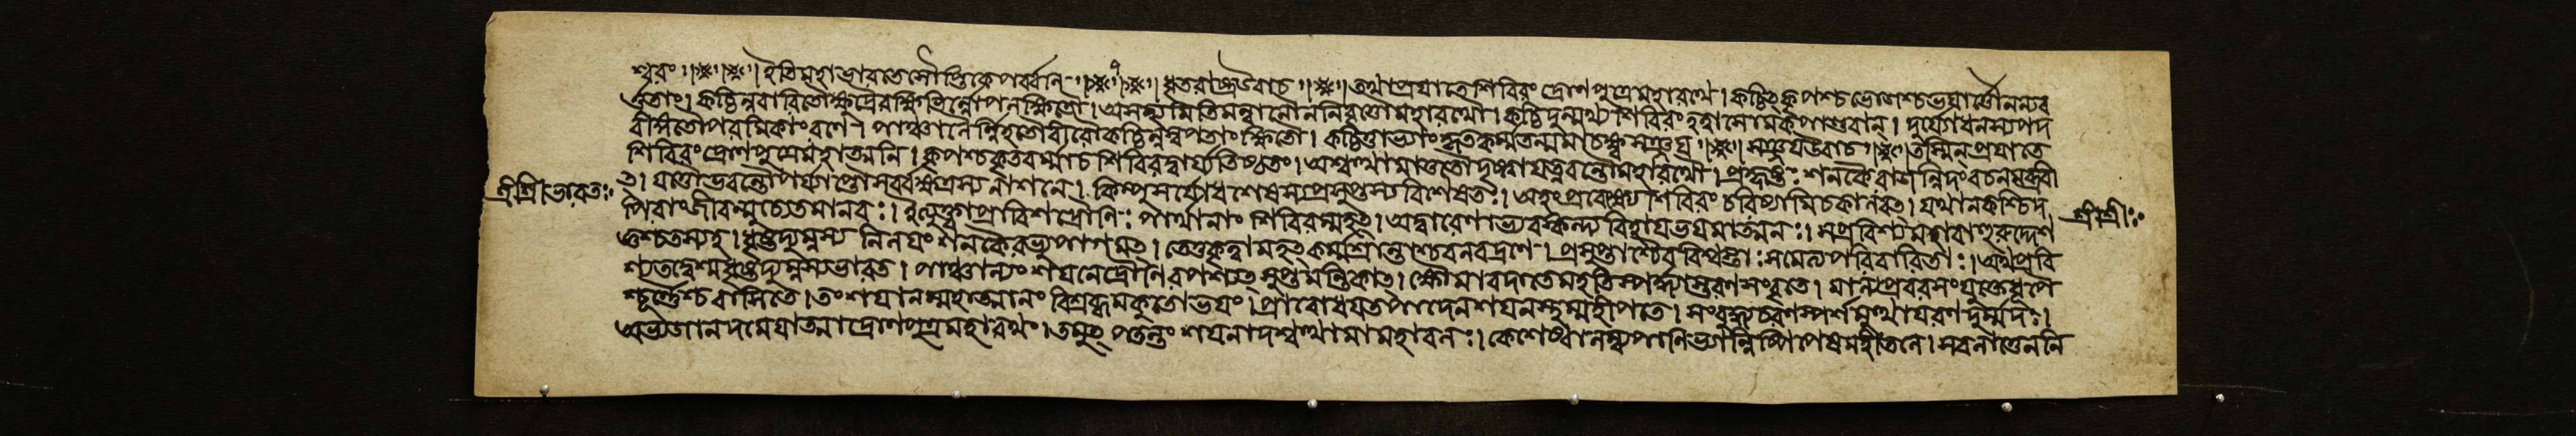 শ্বরং ৷৷ ইতি মহাভারতে সৌপ্তিকে পর্ব্বনি ৷৷ ধৃতরাষ্ট্র উবাচ ৷৷ তথা প্রযাতে শিবিরং দ্রোণপুত্রে মহারথে । কচ্চিৎ কৃপশ্চ ভোজশ্চ ভযার্ত্তৌ ন ন্যব
র্ত্ততাং। কচ্চিন্ন বারিতৌ ক্ষুদ্রৈ রক্ষিভির্ন্নোপলক্ষিতৌ । অসহ্যমিতি মন্বানৌ ন নিবৃত্তৌ মহারথৌ । কচ্চিদুন্মথ্য শিবিরং হত্বা সোমকপাণ্ডবান্ । দুর্য্যোধনস্য পদ
বীং গতৌ পরমিকাং রণে । পাঞ্চালৈর্ন্নিহতৌ বীরৌ কচ্চিন্ন স্বপতাং ক্ষিতৌ । কচ্চিত্তাভ্যাং কৃতং কর্ম্ম তন্মমাচক্ষ্ব সঞ্জয় ৷৷ সঞ্জয উবাচ ৷৷ তস্মিন্ প্রযাতে
শিবিরং দ্রোণপুত্রে মহাত্মনি । কৃপশ্চ কৃতবর্ম্মা চ শিবিরদ্বার্য্যতিষ্ঠতাং। অশ্বত্থামা তু তৌ দৃষ্ট্বা যত্নবন্তৌ মহারথৌ । প্রহৃষ্টঃ শনকৈ রাজন্নিদং বচনমব্রবী
শ্রীশ্রীভারতঃ
ৎ। যত্তৌ ভবন্তৌ পর্য্যাপ্তৌ সর্ব্বক্ষত্রস্য নাশনে । কিম্পুনর্যোধশেষস্য প্রসুপ্তস্য বিশেষতঃ । অহং প্রবেক্ষ্যে শিবিরং চরিষ্যামি চ কালবৎ । যথা ন কশ্চিদ
পি বা জীবন্মুচ্যেত মানবঃ । ইত্যুক্ত্বা প্রাবিশদ্দ্রৌণিঃ পার্থানাং শিবিরম্মহৎ । অদ্বারেণাভ্যবস্কন্দ্য বিহায ভযমাত্মনঃ । স প্রবিশ্য মহাবাহুরুদ্দেশ
শ্রীশ্রীঃ
জ্ঞশ্চ তস্য হ । ধৃষ্টদ্যুম্নস্য নিলযং শনকৈরভ্যুপাগমৎ । তে তু কৃত্বা মহৎ কর্ম্ম শ্রান্তাশ্চ বলবদ্রণে । প্রসুপ্তাশ্চৈব বিশ্বস্তাঃ সসৈন্যপরিবারিতাঃ । অথ প্রবি
শ্য তদ্বেশ্ম ধৃষ্টদ্যুম্নস্য ভারত । পাঞ্চাল্যং শযনে দ্রৌণিরপশ্যৎ সুপ্তমন্তিকাৎ । ক্ষৌমাবদাতে মহতি স্পর্দ্ধ্যাস্তরণসংবৃতে । মাল্যপ্রবরসংযুক্তে ধূপৈ
শ্চূর্ণৈশ্চ বাসিতে । তং শযানম্মহাত্মানং বিশ্রব্ধমকুতোভযং । প্রাবোধযত পাদেন শযনস্থম্মহীপতে । সংবুধ্য চরণস্পর্শমুত্থায রণদুর্ম্মদঃ।
অভ্যজানদমেযাত্মা দ্রোণপুত্রং মহারথং । তমুৎপতন্তং শযনাদশ্বত্থামা মহাবলঃ । কেশেষ্বালম্ব্য পাণিভ্যাং নিষ্পিপেষ মহীতলে । স বলাত্তেন নি